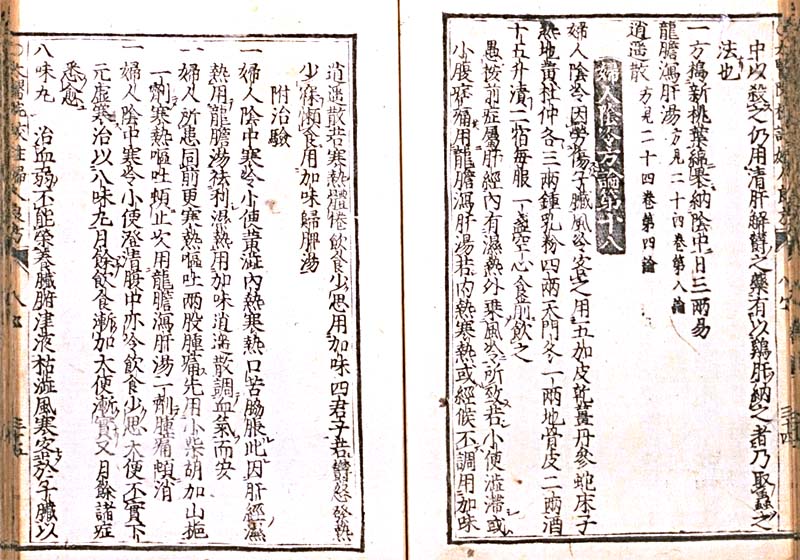 中以殺之仍用清肝解欝之藥有以鷄肝納之者乃取蟲之
法也
一方搗新桃葉綿裹納陰中日三兩易
龍膽瀉肝湯方見二十四卷第八論
逍遥散方見二十四卷第四論
婦人陰冷方論第十八
婦人陰冷因勞傷子臟風冷客之用五加皮乾薑丹參蛇床子
熟地黃杜仲各三兩鍾乳粉四兩天門冬一兩地骨皮二兩酒
十五升漬二宿每服一盞空心食前飲之
愚按前症屬肝經內有濕熱外乗風冷所致若小便澁滯或
小腹痞痛用龍膽瀉肝湯若內熱寒熱或經候不調用加味
逍遥散若寒熱體倦飲食少思用加味四君子若欝怒發熱
少寐懶食用加味歸脾湯
附治驗
一婦人陰中寒冷小便黃澁內熱寒熱口苦脇脹此因肝經濕
熱用龍膽湯祛利濕熱用加味逍遥散調血氣而安
一婦人所患同前更寒熱嘔吐兩股腫痛先用小柴胡加山梔
一劑寒熱嘔吐頓止次用龍膽瀉肝湯一劑腫痛頓消
一婦人陰中寒冷小便澄清腹中亦冷飲食少思大便不實下
元虛寒治以八味丸月餘飲食漸加大便漸實又月餘諸症
悉愈
八味丸 治血弱不能榮養臟腑津液枯澁風寒客於子臟以